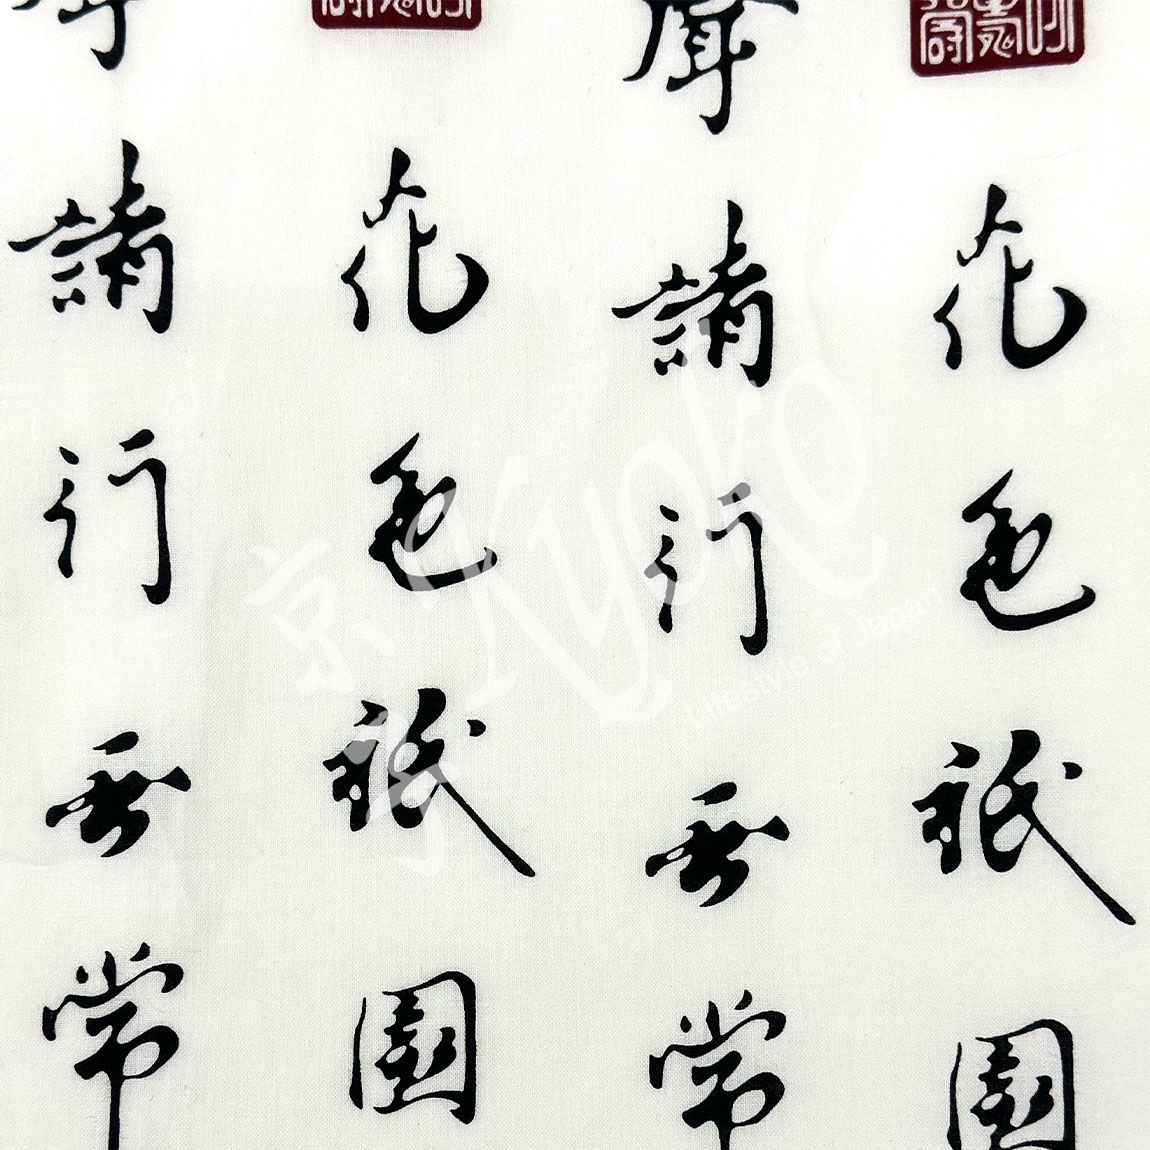 花色祇園
聲諸行無常
花色祇園
諸行無常
京都
Kyoko
Lifestyle of Japan